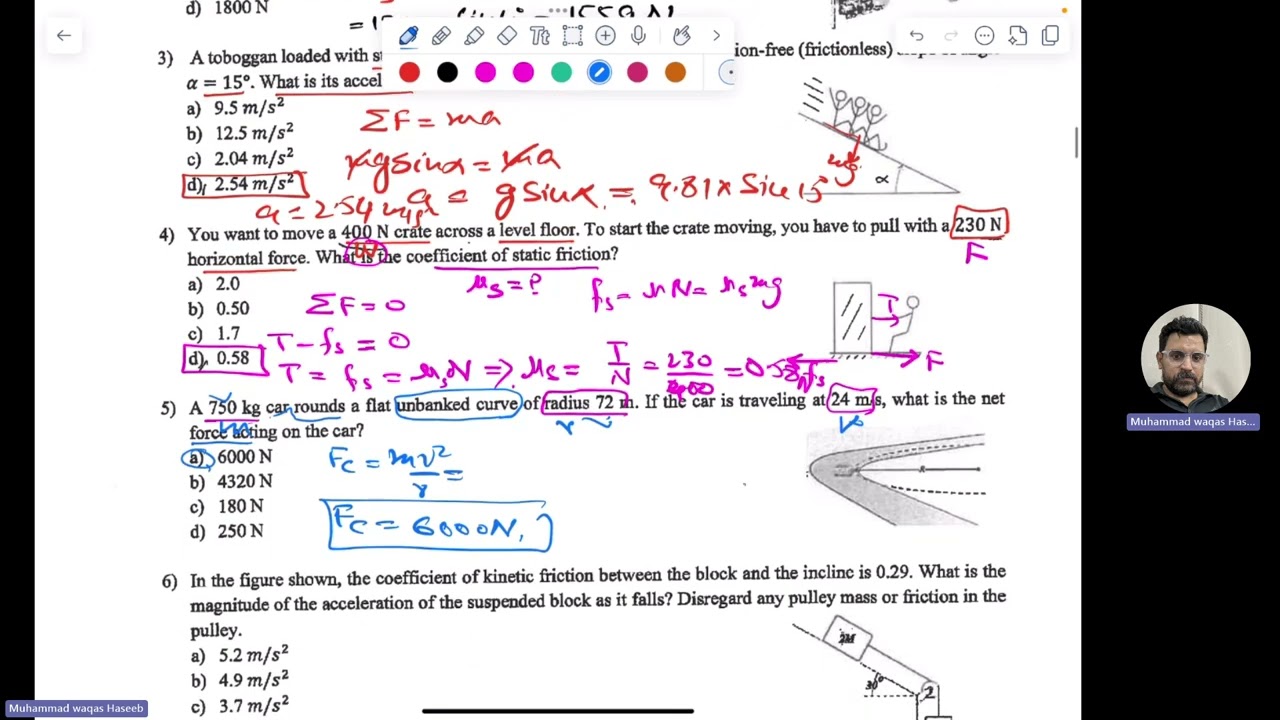 d) 1800 N
3) A toboggan loaded with s
ion-free (frictionless)
α = 15°. What is its accel
a) 9.5 m/s²
b) 12.5 m/s²
c) 2.04 m/s²
d) 2.54 m/s²
ΣF = ma
mg sinα = ma
a = g sinα = 9.81 x Sin 15
a = 2.54 m/s²
mg
α
4) You want to move a 400 N crate across a level floor. To start the crate moving, you have to pull with a 230 N
horizontal force. What is the coefficient of static friction?
W
F
a) 2.0
b) 0.50
c) 1.7
d) 0.58
μs = ?
fs = μN = μs mg
ΣF = 0
T - fs = 0
T = fs = μsN ⇒ μs = T/N = 230/400 = 0.58
T
F
fs
5) A 750 kg car rounds a flat unbanked curve of radius 72 m. If the car is traveling at 24 m/s, what is the net
force acting on the car?
m
r
v
a) 6000 N
b) 4320 N
c) 180 N
d) 250 N
Fc = mv²/r =
Fc = 6000N,
6) In the figure shown, the coefficient of kinetic friction between the block and the incline is 0.29. What is the
magnitude of the acceleration of the suspended block as it falls? Disregard any pulley mass or friction in the
pulley.
a) 5.2 m/s²
b) 4.9 m/s²
c) 3.7 m/s²
2M
30°
Muhammad waqas Has...
Muhammad waqas Haseeb